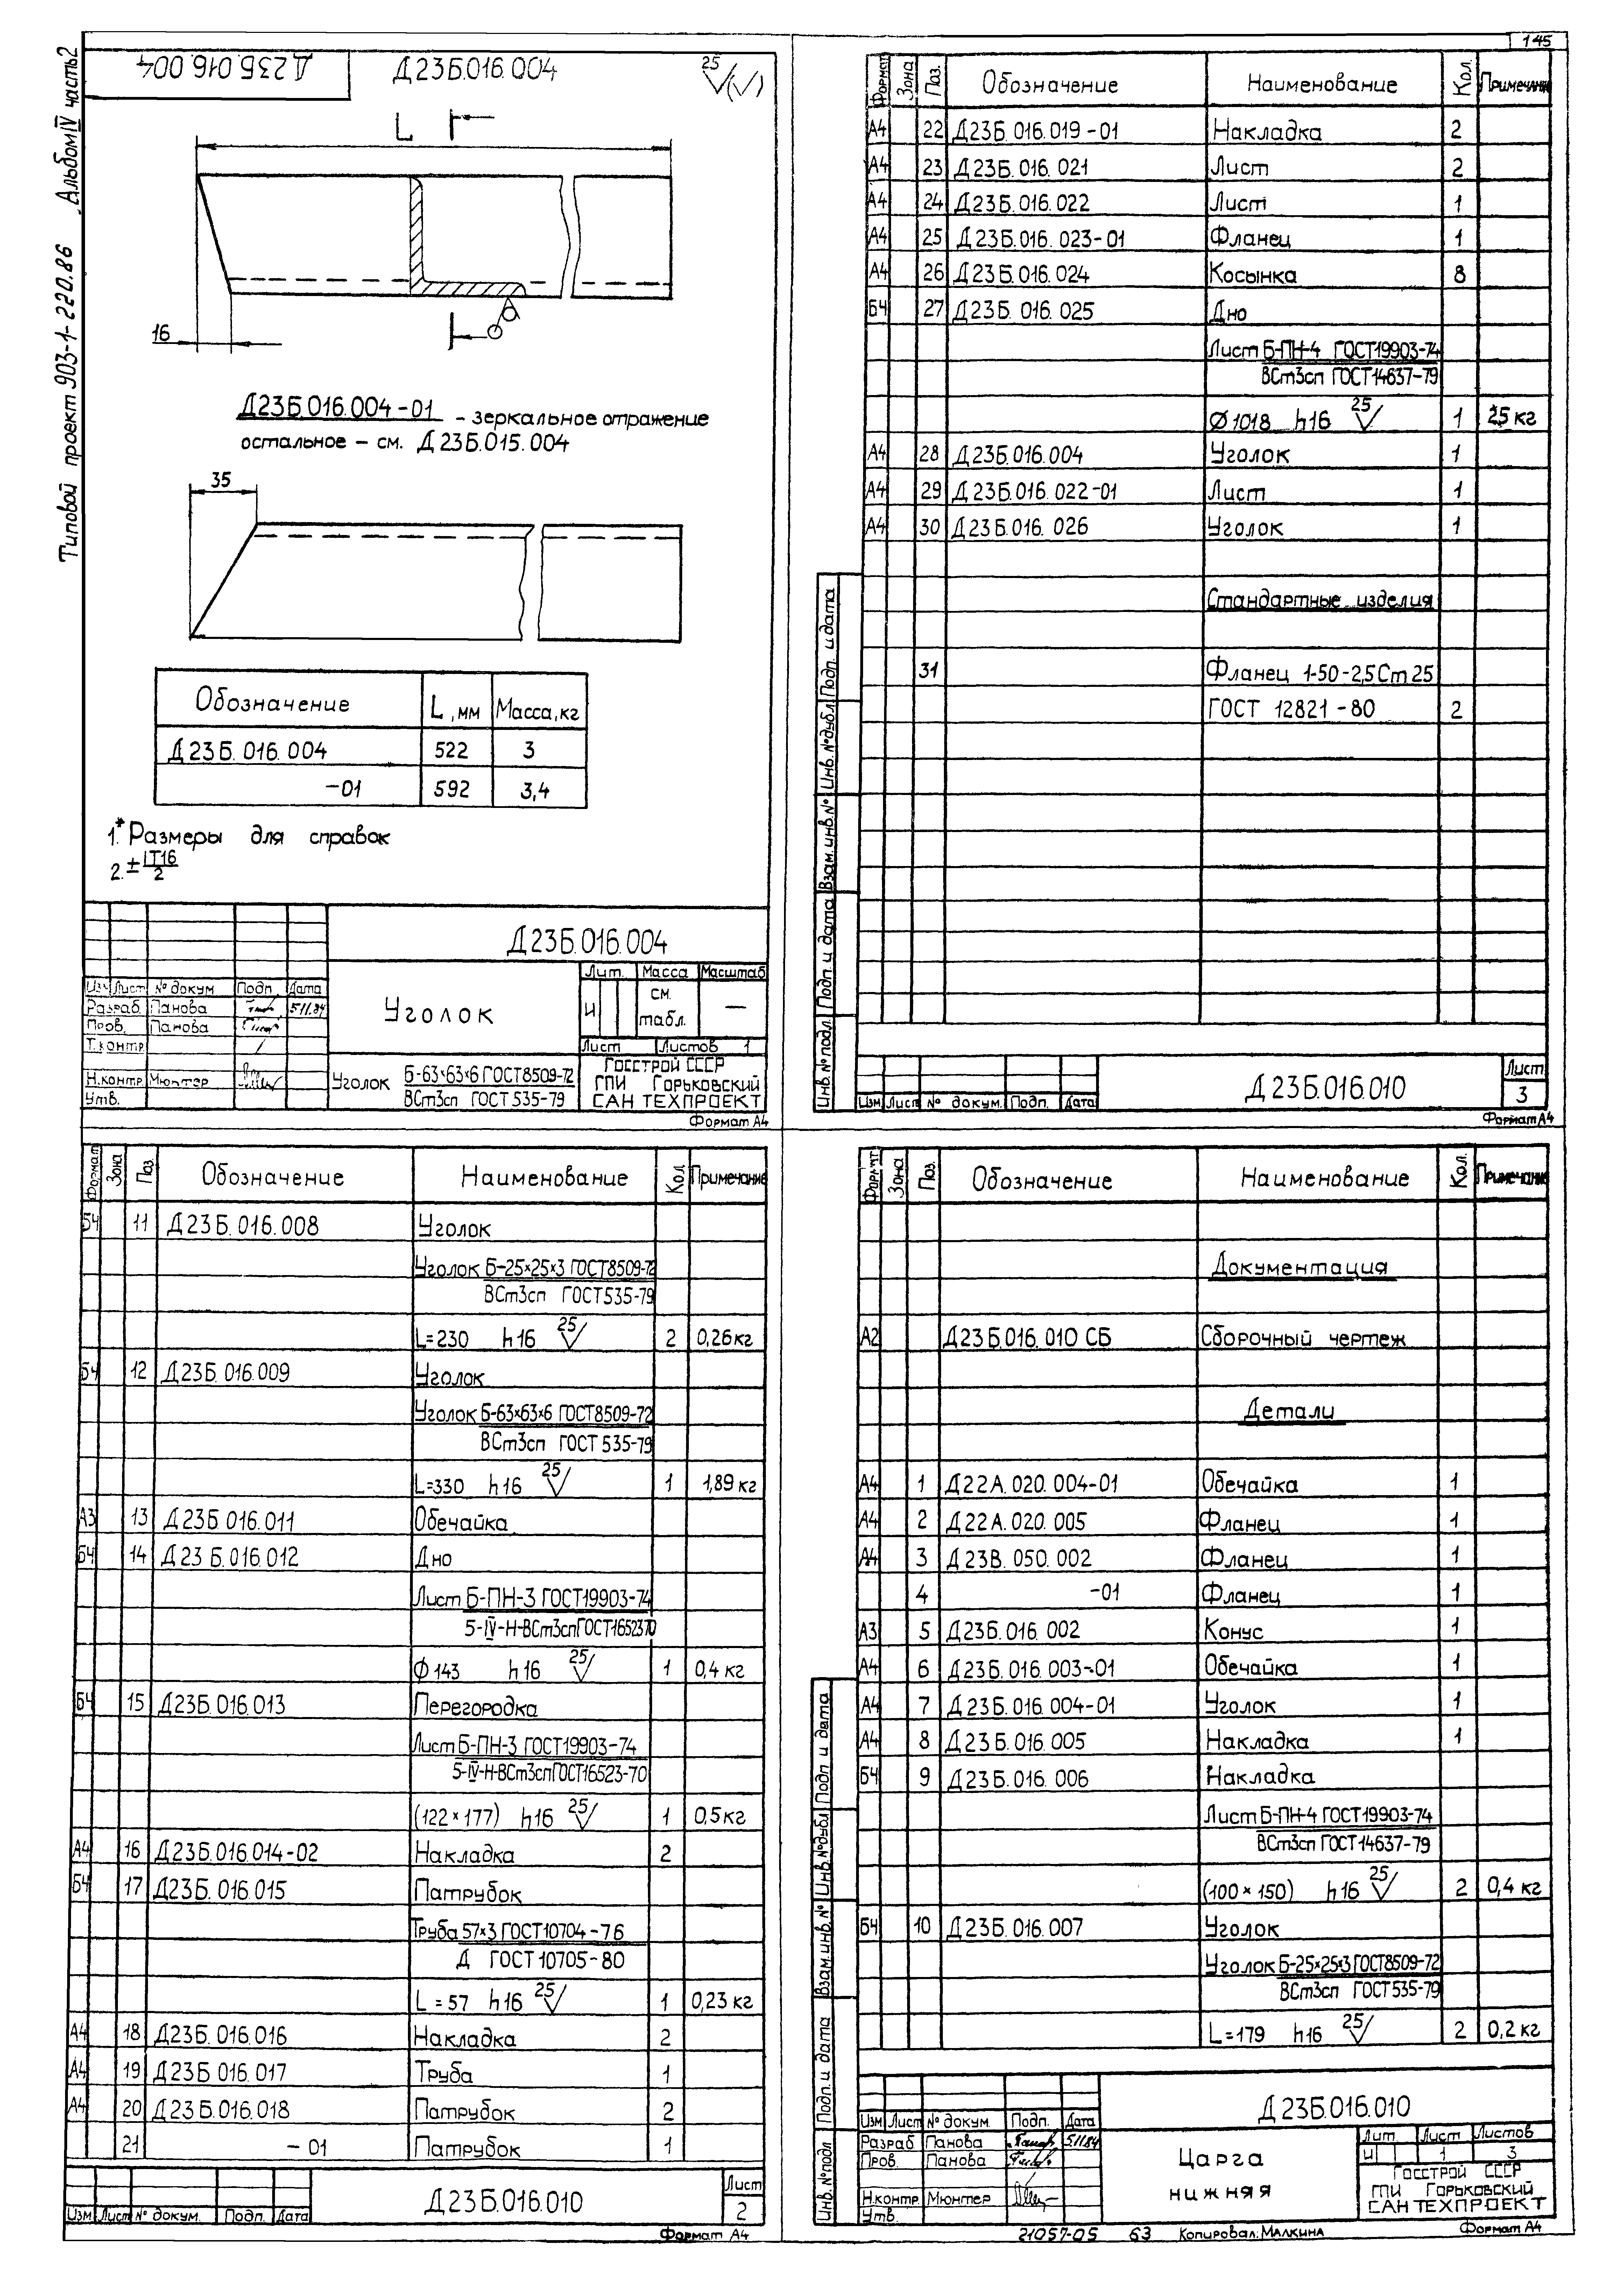 145
Типовой проект 903-1-220.86 Альбом IV часть 2
Д23Б.016.004
Д23Б.016.004
25
L
16
Д23Б.016.004-01 - зеркальное отражение
остальное - см. Д23Б.015.004
35
Обозначение L, мм Масса, кг
Д23Б.016.004 522 3
-01 592 3,4
1.* Размеры для справок
2. ± IT16/2
Д23Б.016.004
Уголок
Лит. Масса Масштаб
И см. табл. —
Лист Листов 1
Изм Лист № докум Подп. Дата
Разраб. Панова 5.11.84
Пров. Панова
Т.контр
Н.контр. Мюнтер
Утв.
Уголок Б-63×63×6 ГОСТ8509-72
ВСт3сп ГОСТ 535-79
Госстрой СССР
ГПИ Горьковский
САНТЕХПРОЕКТ
Формат А4
Формат Зона Поз. Обозначение Наименование Кол. Примечание
А4 22 Д23Б.016.019-01 Накладка 2
А4 23 Д23Б.016.021 Лист 2
А4 24 Д23Б.016.022 Лист 1
А4 25 Д23Б.016.023-01 Фланец 1
А4 26 Д23Б.016.024 Косынка 8
БЧ 27 Д23Б.016.025 Дно
Лист Б-ПН-4 ГОСТ19903-74
ВСт3сп ГОСТ14637-79
Ø1018 h16 25 1 25 кг
А4 28 Д23Б.016.004 Уголок 1
А4 29 Д23Б.016.022-01 Лист 1
А4 30 Д23Б.016.026 Уголок 1
Стандартные изделия
31 Фланец 1-50-2,5 Ст 25
ГОСТ 12821-80 2
Инв. № подл. Подп. и дата Взам. инв. № Инв. № дубл. Подп. и дата
Изм Лист № докум. Подп. Дата
Д23Б.016.010
Лист
3
Формат А4
Формат Зона Поз. Обозначение Наименование Кол. Примечание
БЧ 11 Д23Б.016.008 Уголок
Уголок Б-25×25×3 ГОСТ8509-72
ВСт3сп ГОСТ535-79
L=230 h16 25 2 0,26кг
БЧ 12 Д23Б.016.009 Уголок
Уголок Б-63×63×6 ГОСТ8509-72
ВСт3сп ГОСТ 535-79
L=330 h16 25 1 1,89 кг
А3 13 Д23Б.016.011 Обечайка
БЧ 14 Д23Б.016.012 Дно
Лист Б-ПН-3 ГОСТ19903-74
5-IV-Н-ВСт3сп ГОСТ16523 70
Ø143 h16 25 1 0,4 кг
БЧ 15 Д23Б.016.013 Перегородка
Лист Б-ПН-3 ГОСТ19903-74
5-IV-Н-ВСт3сп ГОСТ16523-70
(122×177) h16 25 1 0,5кг
А4 16 Д23Б.016.014-02 Накладка 2
БЧ 17 Д23Б.016.015 Патрубок
Труба 57×3 ГОСТ10704-76
Д ГОСТ10705-80
L=57 h16 25 1 0,23 кг
А4 18 Д23Б.016.016 Накладка 2
А4 19 Д23Б.016.017 Труба 1
А4 20 Д23Б.016.018 Патрубок 2
21 -01 Патрубок 1
Изм Лист № докум. Подп. Дата
Д23Б.016.010
Лист
2
Формат А4
Формат Зона Поз. Обозначение Наименование Кол. Примечание
Документация
А2 Д23Б.016.010 СБ Сборочный чертеж
Детали
А4 1 Д22А.020.004-01 Обечайка 1
А4 2 Д22А.020.005 Фланец 1
А4 3 Д23В.050.002 Фланец 1
4 -01 Фланец 1
А3 5 Д23Б.016.002 Конус 1
А4 6 Д23Б.016.003-01 Обечайка 1
А4 7 Д23Б.016.004-01 Уголок 1
А4 8 Д23Б.016.005 Накладка 1
БЧ 9 Д23Б.016.006 Накладка
Лист Б-ПН-4 ГОСТ19903-74
ВСт3сп ГОСТ14637-79
(100×150) h16 25 2 0,4 кг
БЧ 10 Д23Б.016.007 Уголок
Уголок Б-25×25×3 ГОСТ8509-72
ВСт3сп ГОСТ535-79
L=179 h16 25 2 0,2 кг
Инв. № подл Подп. и дата Взам. инв. № Инв. № дубл Подп и дата
Д23Б.016.010
Изм Лист № докум. Подп. Дата
Разраб Панова 5.11.84
Пров. Панова
Н.контр Мюнтер
Утв.
Царга
нижняя
Лит Лист Листов
И 1 3
Госстрой СССР
ГПИ Горьковский
САНТЕХПРОЕКТ
21057-05 63 Копировал: Малкина Формат А4